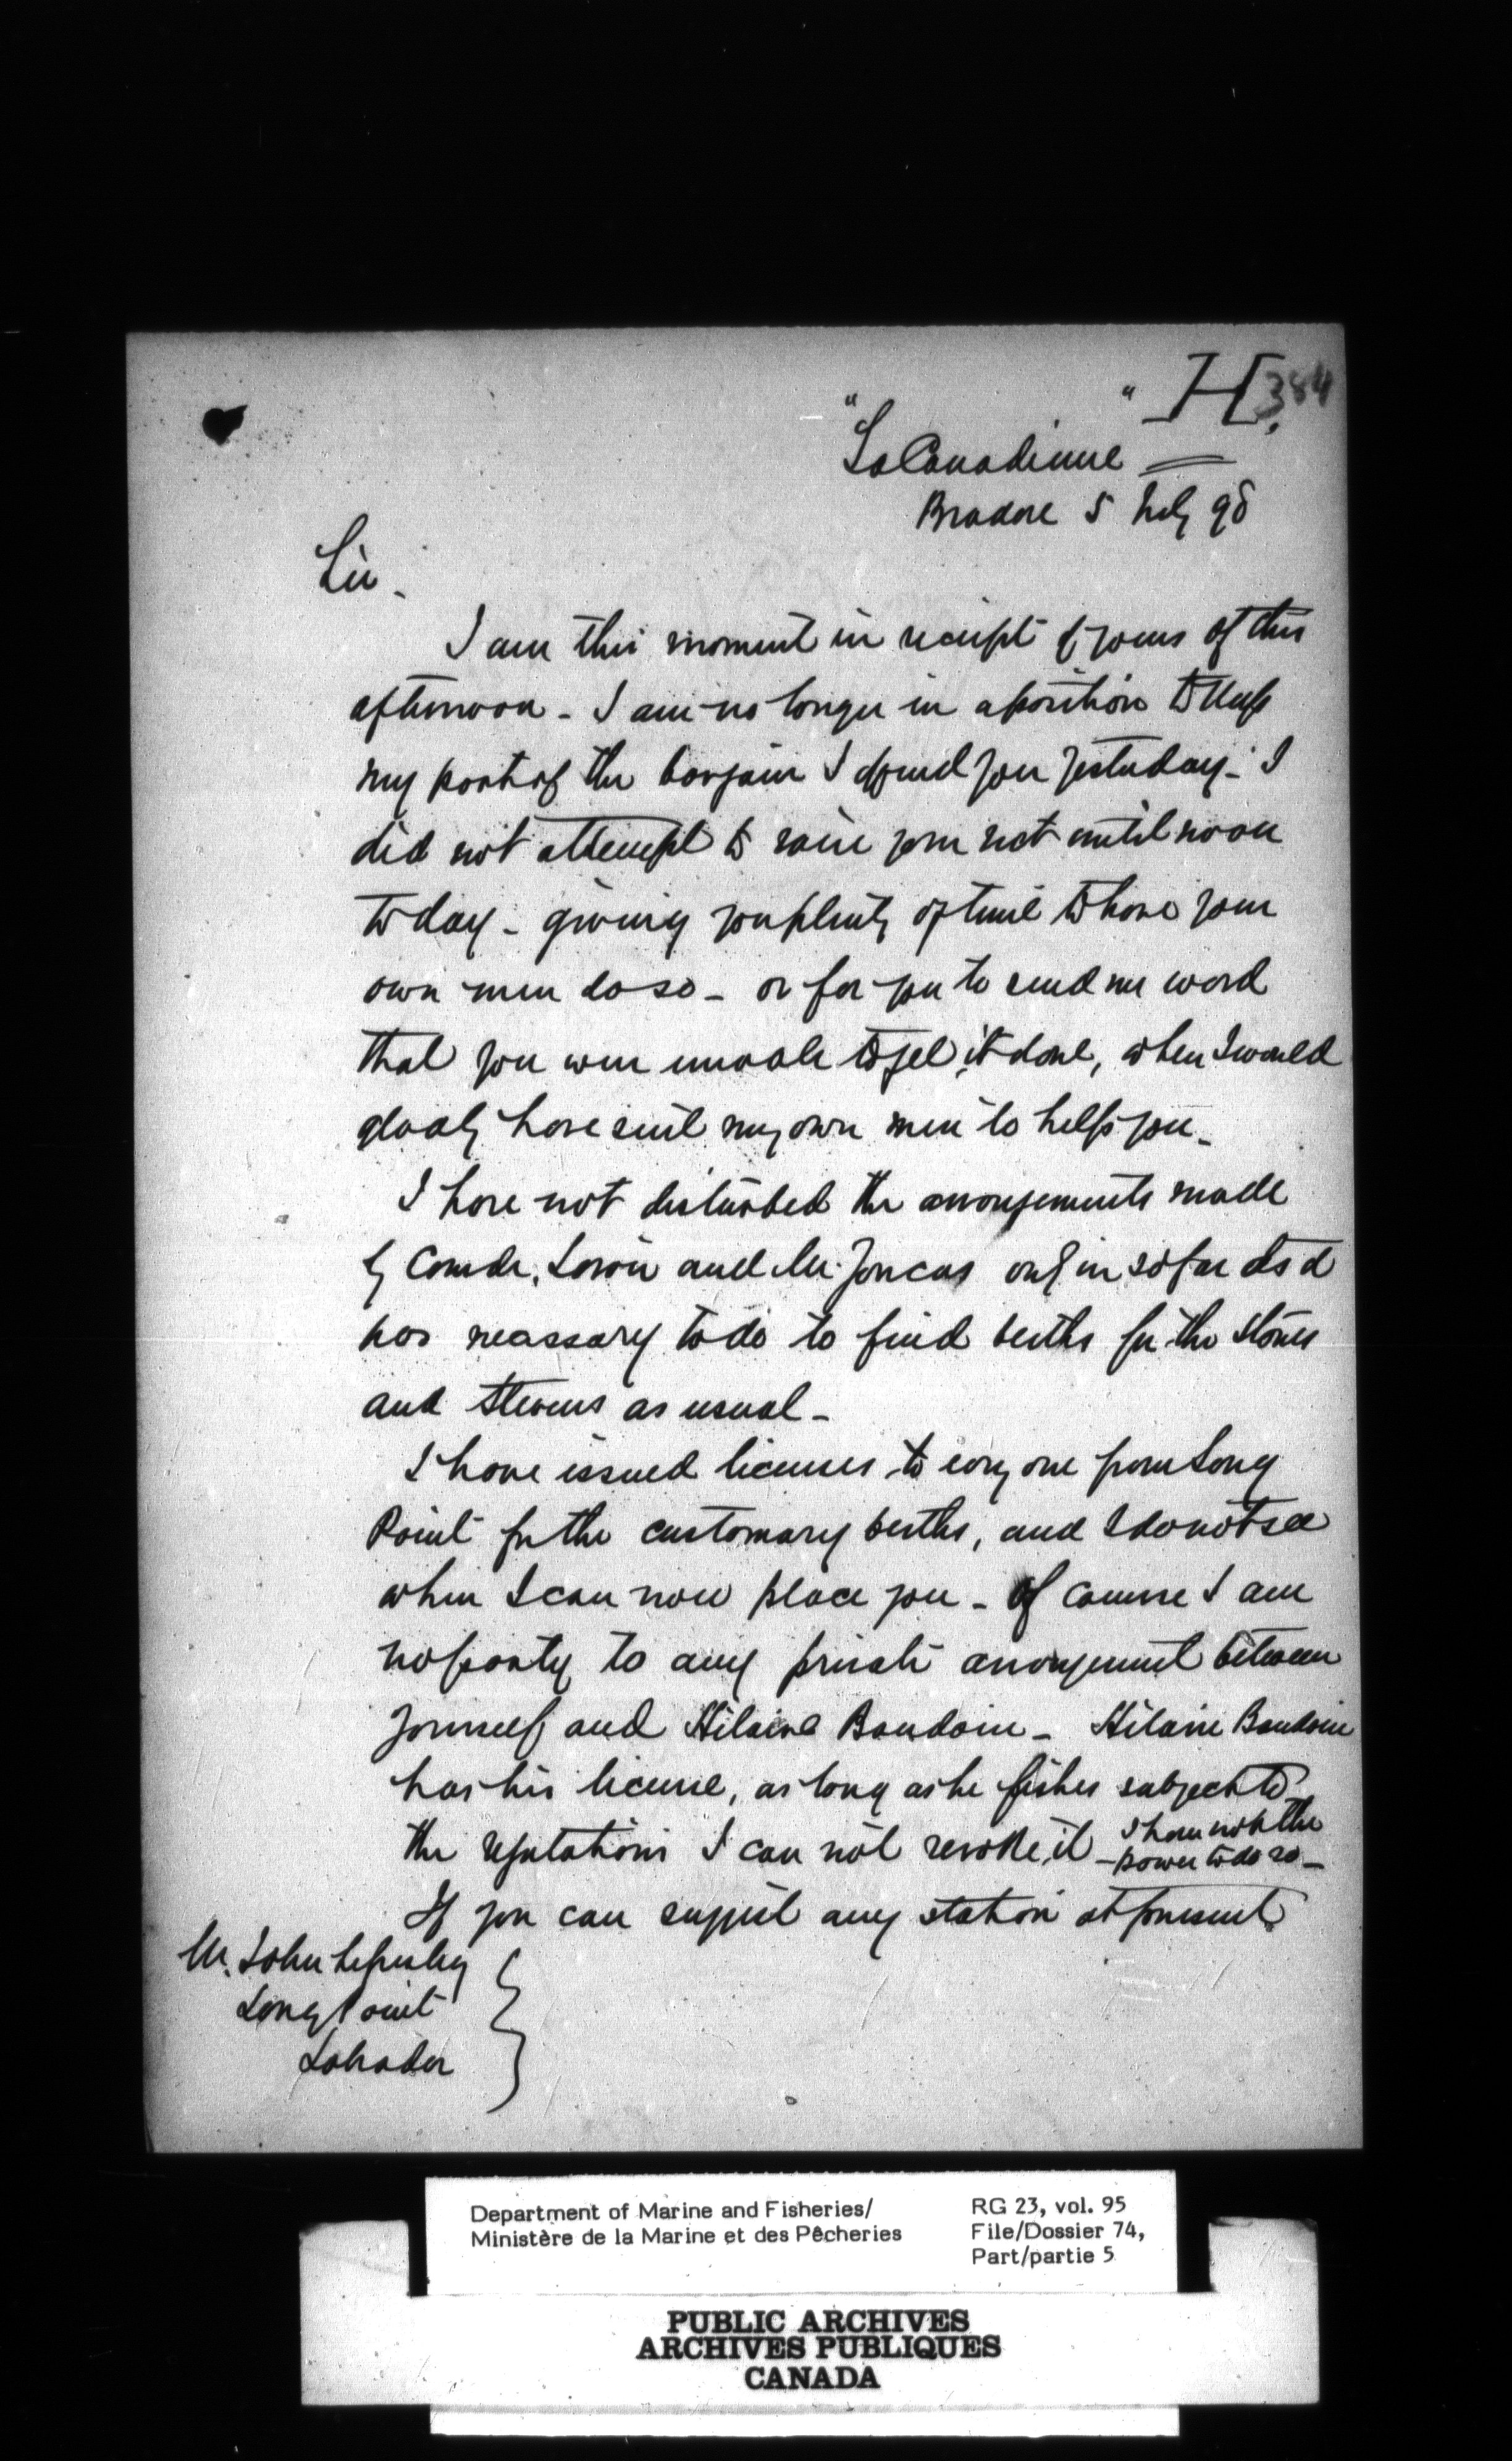 H. 384
"La Canadienne"
Bradore 5 July 98
Sir.
I am this moment in receipt of yours of this
afternoon - I am no longer in a position to keep
my part of the bargain I offered you yesterday - I
did not attempt to raise your net until noon
to day - giving you plenty of time to have your
own men do so - or for you to send me word
that you were unable to get it done, when I would
gladly have sent my own men to help you -
I have not disturbed the arrangements made
by Comdr. and Mr. Joncas only in so far as it
was necessary to do to find berths for the Stones
and Stevens as usual -
I have issued licenses to every one from Long
Point for the customary berths, and I do not see
where I can now place you - Of course I am
no party to any private arrangement between
yourself and Hilaire Baudoin - Hilaire Baudoin
has his license, as long as he fishes subject to
the regulations I can not revoke it - I have not the
power to do so -
If you can suggest any station at present
Mr. John
Long Point
Labrador
Department of Marine and Fisheries/
Ministère de la Marine et des Pêcheries
RG 23, vol. 95
File/Dossier 74,
Part/partie 5
PUBLIC ARCHIVES
ARCHIVES PUBLIQUES
CANADA